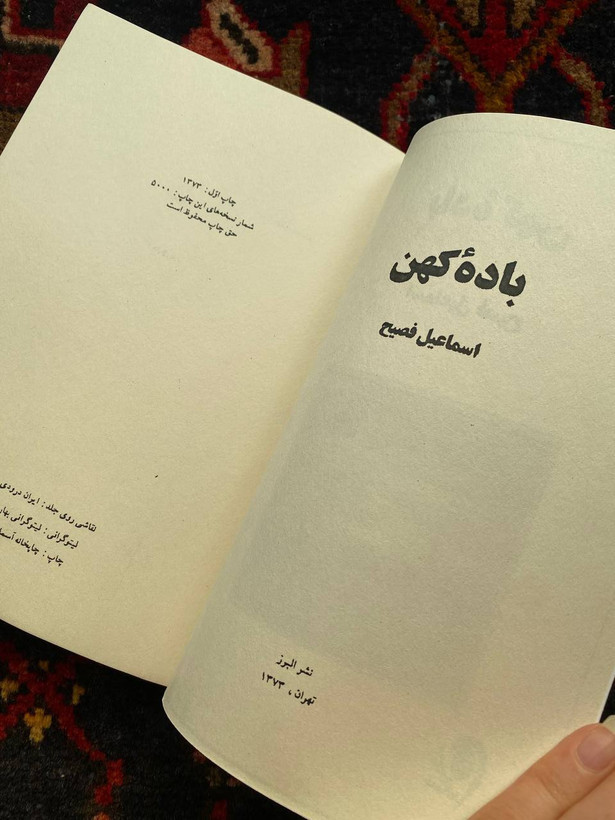 باده‌ٔ کهن
اسماعیل فصیح
نشر البرز
تهران، ۱۳۷۳
چاپ اوّل: ۱۳۷۳
شمار نسخه‌های این چاپ: ۵۰۰۰
حق چاپ محفوظ است
نقاشی روی جلد: ایران درودی
لیتوگرافی: لیتوگرافی بهار
چاپ: چاپخانه آسما